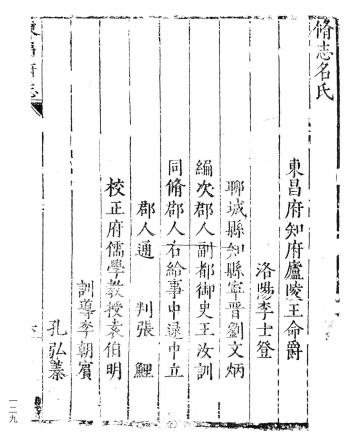 脩志名氏
東昌府知府廬陵王命爵
洛陽李士登
聊城縣知縣寧晉劉文炳
編次郡人副都御史王汝訓
同脩郡人右給事中逯中立
郡人通 判張 鯉
校正府儒學教授袁伯明
訓導李朝賓
孔弘蓁
一二九